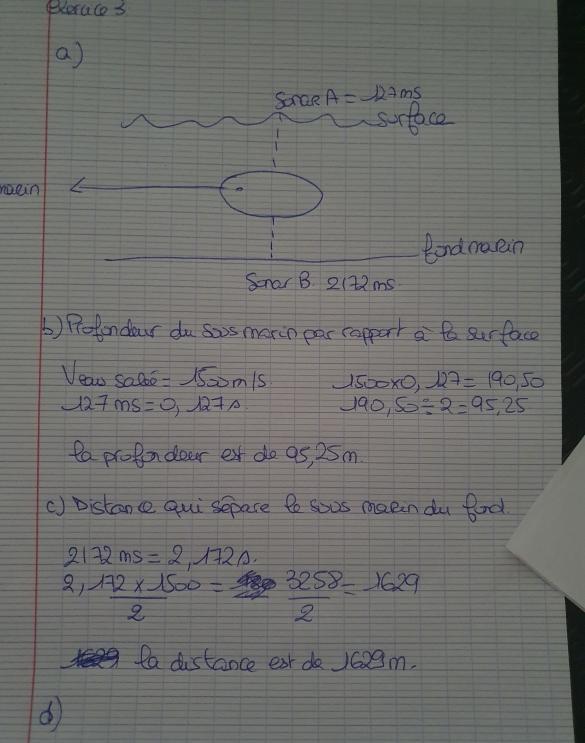 Exercice 3
a)
Sonar A = 127ms
surface
marin
fond marin
Sonar B. 2172 ms.
b) Profondeur du sous marin par rapport à la surface
Veau salée = 1500 m/s. 1500x0,127 = 190,50
127 ms = 0,127s. 190,50 ÷ 2 = 95,25
la profondeur est de 95,25m.
c) Distance qui sépare le sous marin du fond.
2172 ms = 2,172s.
2,172 x 1500 = 3258 = 1629
2 2
la distance est de 1629m.
d)